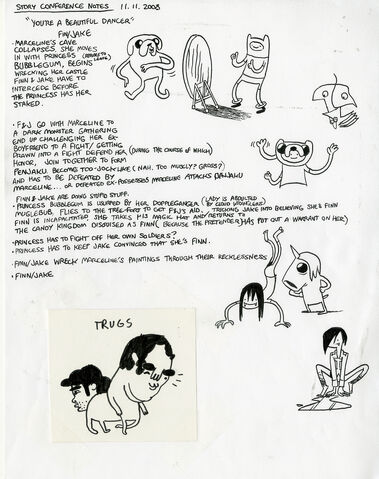 STORY CONFERENCE NOTES 11.11.2008
"YOU'RE A BEAUTIFUL DANCER"
FIN/JAKE
• MARCELINE'S CAVE
COLLAPSES. SHE MOVES
IN WITH PRINCESS
BUBBLEGUM, BEGINS
WRECKING HER CASTLE
FINN & JAKE HAVE TO
INTERCEDE BEFORE
THE PRINCESS HAS HER
STAKED.
• F&J GO WITH MARCELINE TO
A DARK MONSTER GATHERING
END UP CHALLENGING HER EX-
BOYFRIEND TO A FIGHT/ GETTING
DRAWN INTO A FIGHT DEFEND HER (DURING THE COURSE OF WHICH)
HONOR, JOIN TOGETHER TO FORM
BECOME TOO- LIKE (NAH. TOO MUSHY? GROSS?)
AND HAS TO BE DEFEATED BY
MARCELINE... OR DEFEATED EX- POSSESSES MARCELINE ATTACKS
FINN & JAKE ARE DOING STUPID STUFF.
• PRINCESS BUBBLEGUM IS USURPED BY HER DOPPLEGANGER (LADY IS ABDUCTED BY
FLIES TO THE TREE-FORT TO GET FIN'S AID. TRICKING JAKE INTO BELIEVING SHE'S FINN
FINN IS INCAPACITATED. SHE TAKES HIS MAGIC HAT AND RETURNS TO
THE CANDY KINGDOM DISGUISED AS FINN (BECAUSE THE PRETENDER HAS PUT OUT A WARRANT ON HER)
• PRINCESS HAS TO FIGHT OFF HER OWN SOLDIERS?
• PRINCESS HAS TO KEEP JAKE CONVINCED THAT SHE'S FINN.
• FINN/JAKE WRECK MARCELINE'S PAINTINGS THROUGH THEIR RECKLESSNESS
• FINN/JAKE
TRUGS